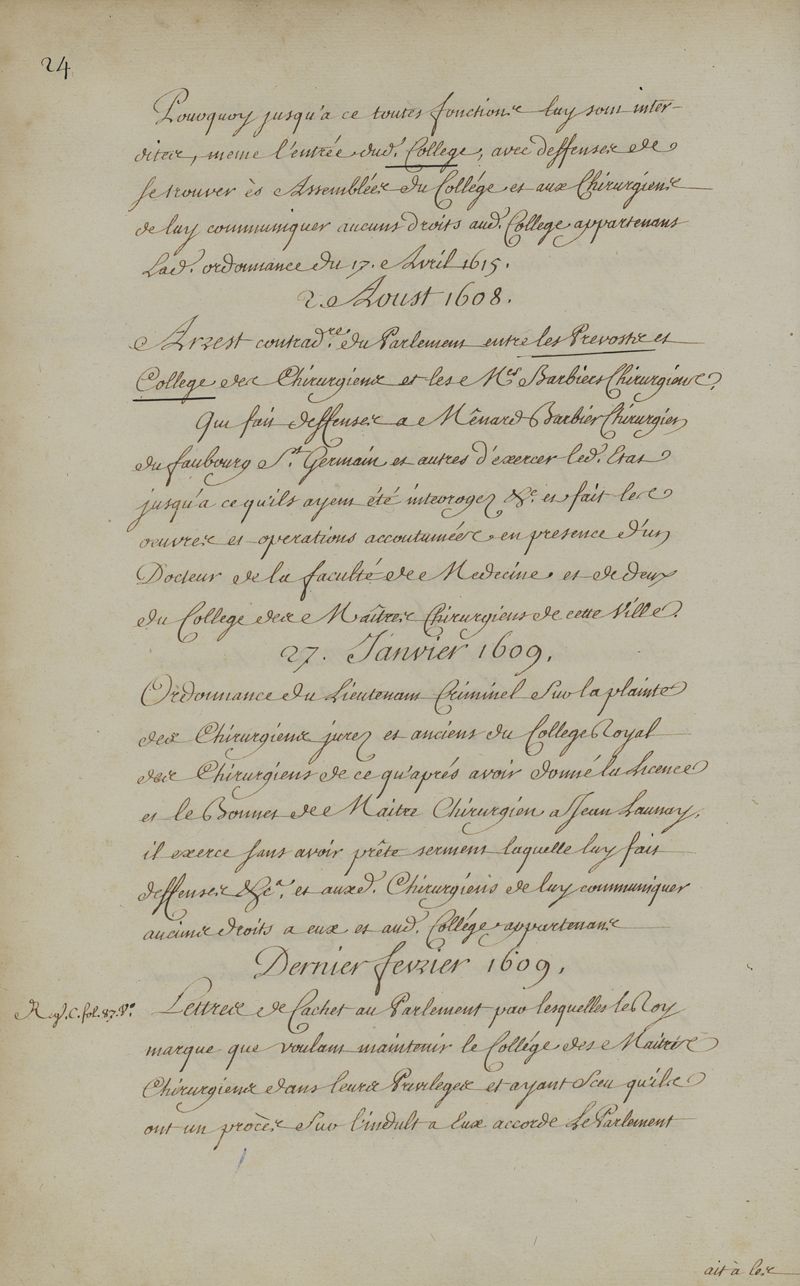 24
Pourquoy jusqu'a ce toutes fonctions luy sont inter-
dites, meme l'entrée dud. College, avec deffenses de
se trouver ès Assemblées du Collége et aux Chirurgiens
de luy communiquer aucuns droits aud. College appartenans
Lad. ordonnance du 17. Avril 1615.
2. Aoust 1608.
Arrest contrad.re du Parlement entre les Prevosts et
College des Chirurgiens et les M.es Barbiers Chirurgiens
Qui fait deffenses a Mênard Barbier Chirurgien
du faubourg S.t Germain et autres d'exercer led. Etat
jusqu'a ce qu'ils ayent été interrogez &c. et fait les
oeuvres et operations accoutumées en presence d'un
Docteur de la faculté de Medecine, et de deux
du College des Maîtres Chirurgiens de cette Ville.
27. Janvier 1609.
Ordonnance du Lieutenant Criminel Sur la plainte
des Chirurgiens jurez et anciens du College Royal
des Chirurgiens de ce qu'aprés avoir donné la Licence
et le Bonnet de Maitre Chirurgien a Jean Launay,
il exerce sans avoir prête serment laquelle luy fait
deffenses &c.a et auxd. Chirurgiens de luy communiquer
aucuns droits a eux et aud. Collége appartenans
Dernier fevrier 1609.
Reg. C. fol. 87. V.o
Lettres de Cachet au Parlement par lesquelles le Roy
marque que voulant maintenir le Collége des Maitres
Chirurgiens dans leurs Privileges et ayant Sceu qu'ils
ont un procès Sur l'indult a Eux accorde Le Parlement
ait à les